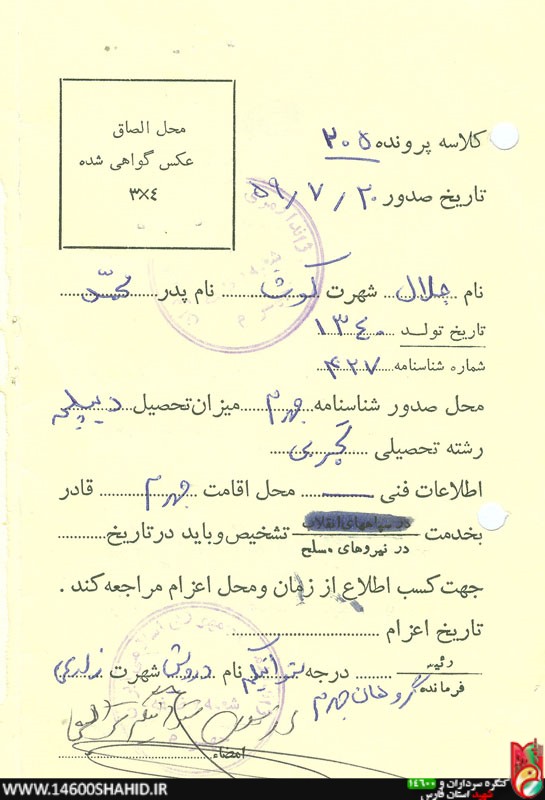 محل الصاق
عکس گواهی شده
۳×۴
کلاسه پرونده ۲۰۵
تاریخ صدور ۵۹/۷/۲۰
نام جلال شهرت کوشا نام پدر محمد
تاریخ تولد ۱۳۴۰
شماره شناسنامه ۴۲۷
محل صدور شناسنامه جهرم میزان تحصیل دیپلم
رشته تحصیلی تجربی
اطلاعات فنی ـــ محل اقامت جهرم قادر
بخدمت در سپاههای انقلاب در نیروهای مسلح تشخیص و باید در تاریخ
جهت کسب اطلاع از زمان و محل اعزام مراجعه کند .
تاریخ اعزام
رئیس فرمانده گروهان جهرم درجه ستوانیکم نام درویش شهرت زارعی
امضاء
WWW.14600SHAHID.IR
کنگره سرداران و ۱۴۶۰۰
شهید استان فارس